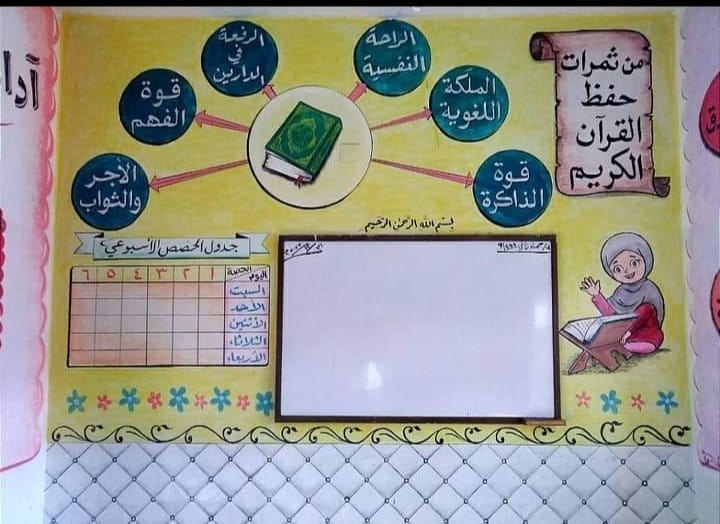 من ثمرات
حفظ
القرآن
الكريم
الراحة
النفسية
الرفعة
في
الدارين
الملكة
اللغوية
قوة
الفهم
قوة
الذاكرة
الأجر
والثواب
بسم الله الرحمن الرحيم
جدول الحصص الأسبوعي
الحصة
اليوم
١ ٢ ٣ ٤ ٥ ٦
السبت
الأحد
الأثنين
الثلاثاء
الأربعاء
آدا